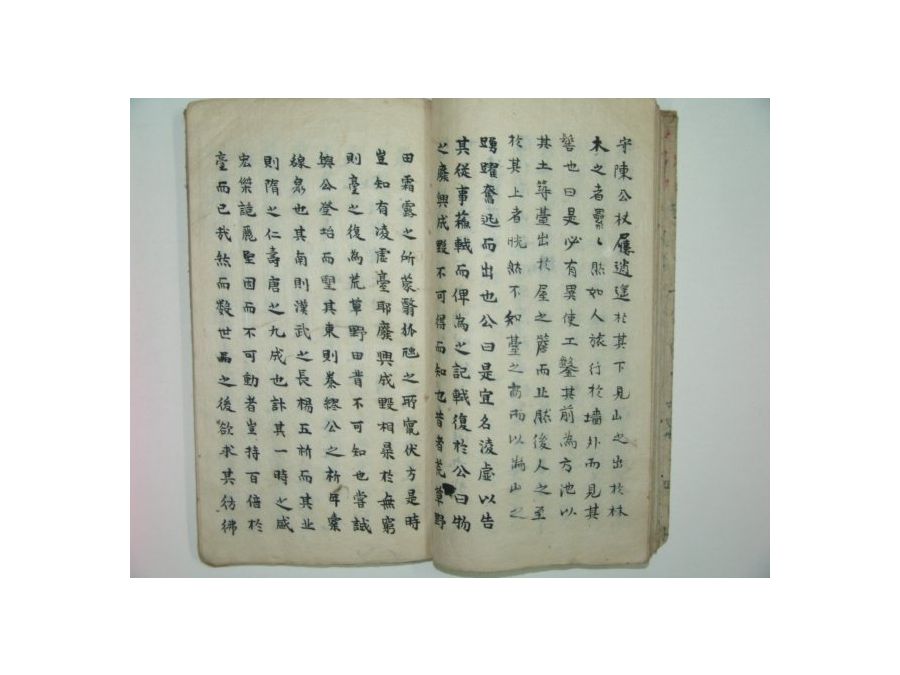 守陳公杖屨逍遙於其下見山之出於林
木之者纍〻然如人旅行於墻外而見其
髻也曰是必有異使工鑿其前為方池以
其土築臺出於屋之簷而止然後人之至
於其上者恍然不知臺之高而以為山之
踴躍奮迅而出也公曰是宜名凌虛以告
其從事蘇軾而俾為之記軾復於公曰物
之廢興成毀不可得而知也昔者荒草野
田霜露之所蒙翳狐虺之所竄伏方是時
豈知有凌虛臺耶廢興成毀相尋於無窮
則臺之復為荒草野田昔不可知也嘗試
與公登始而望其東則秦穆公之祈年橐
線泉也其南則漢武之長楊五柞而其北
則隋之仁壽唐之九成也計其一時之盛
宏傑詭麗堅固而不可動者豈持百倍於
臺而已哉然而數世之後欲求其彷彿